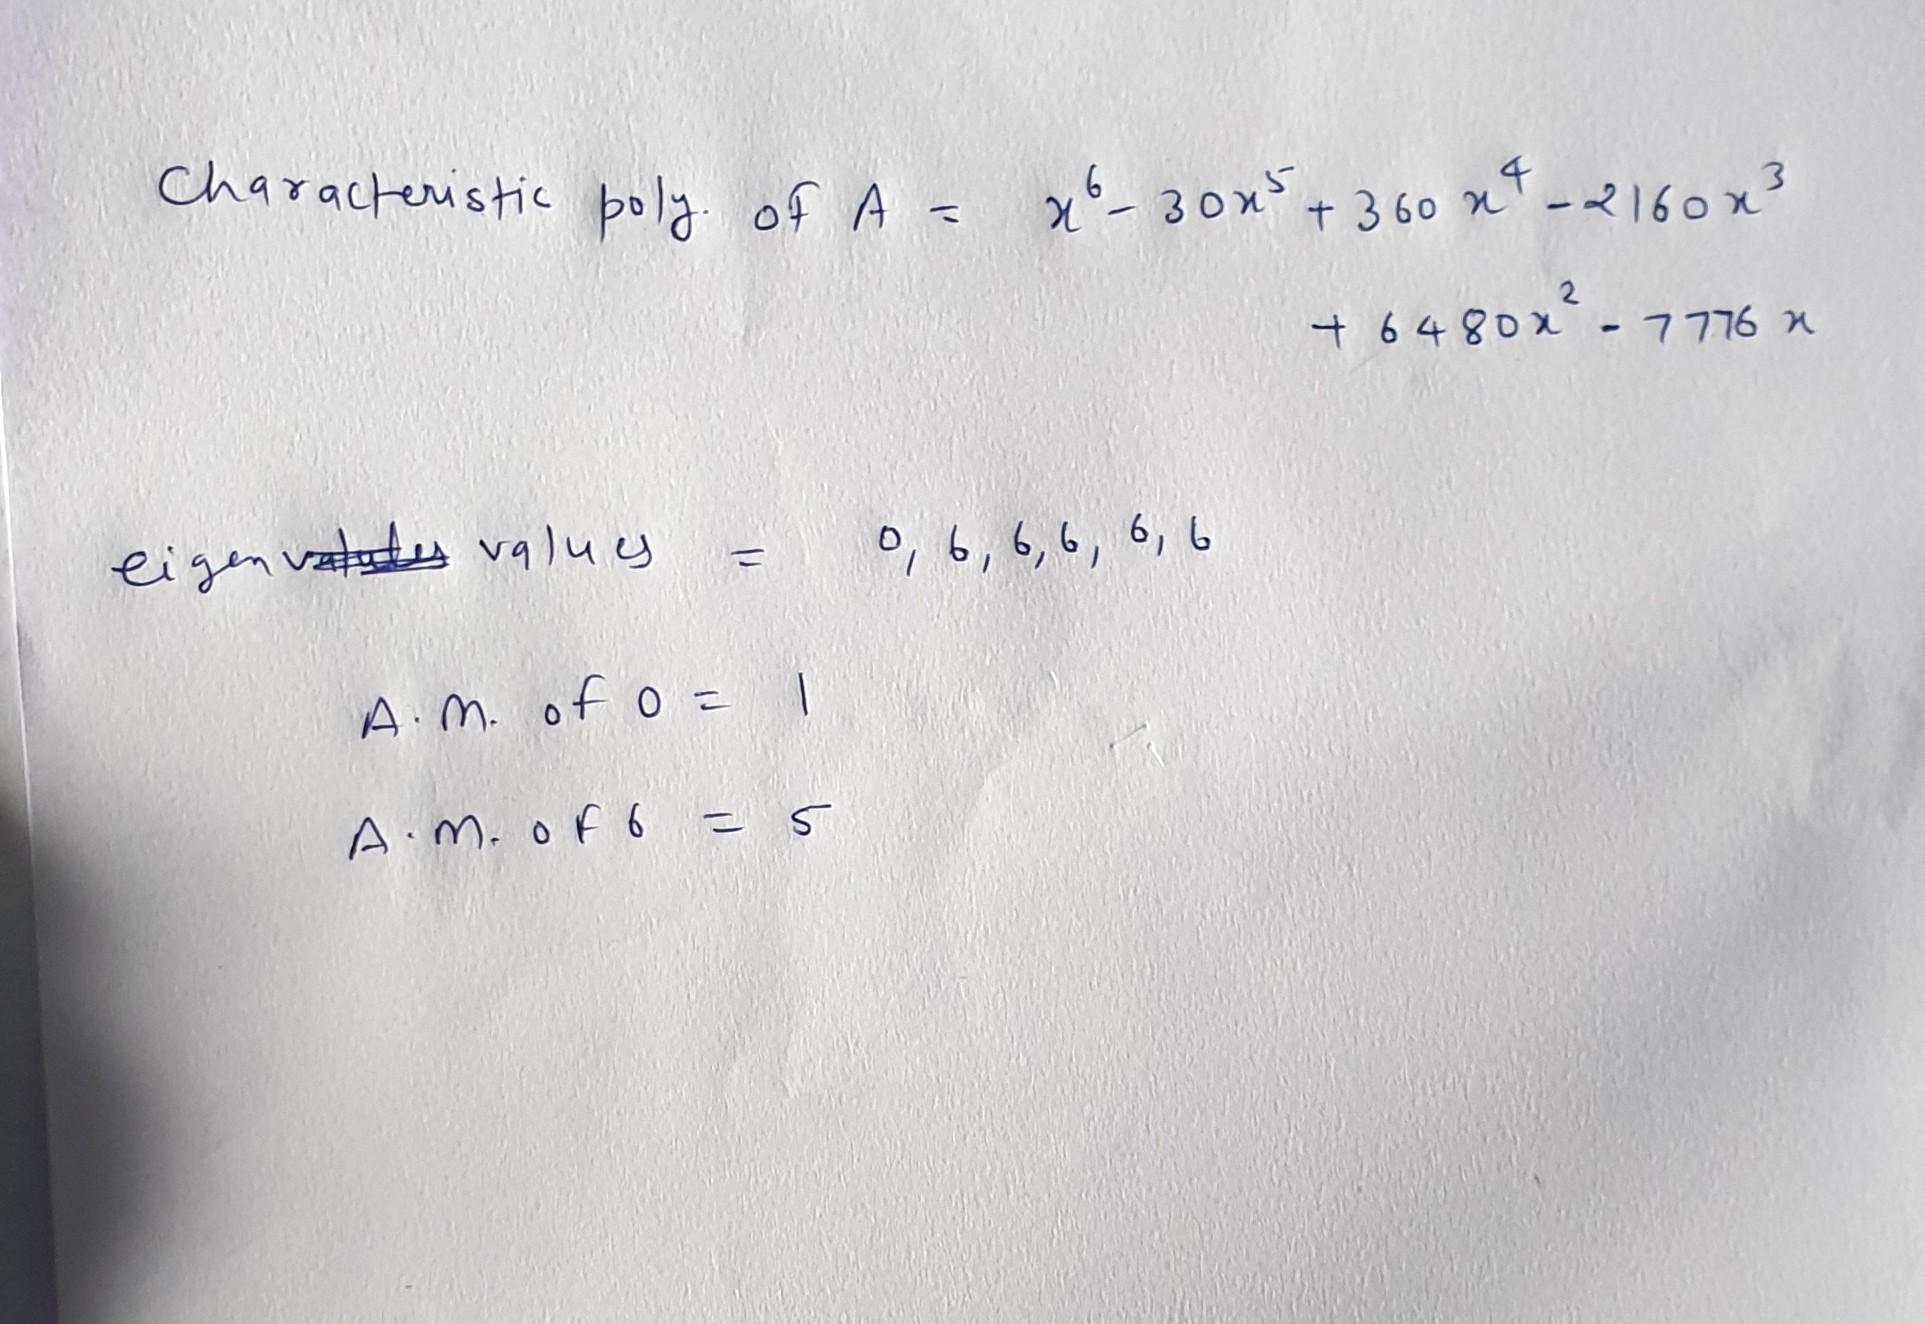 Characteristic poly. of A = x⁶ - 30x⁵ + 360x⁴ - 2160x³
+ 6480x² - 7776x
eigen values = 0, 6, 6, 6, 6, 6
A.M. of 0 = 1
A.M. of 6 = 5